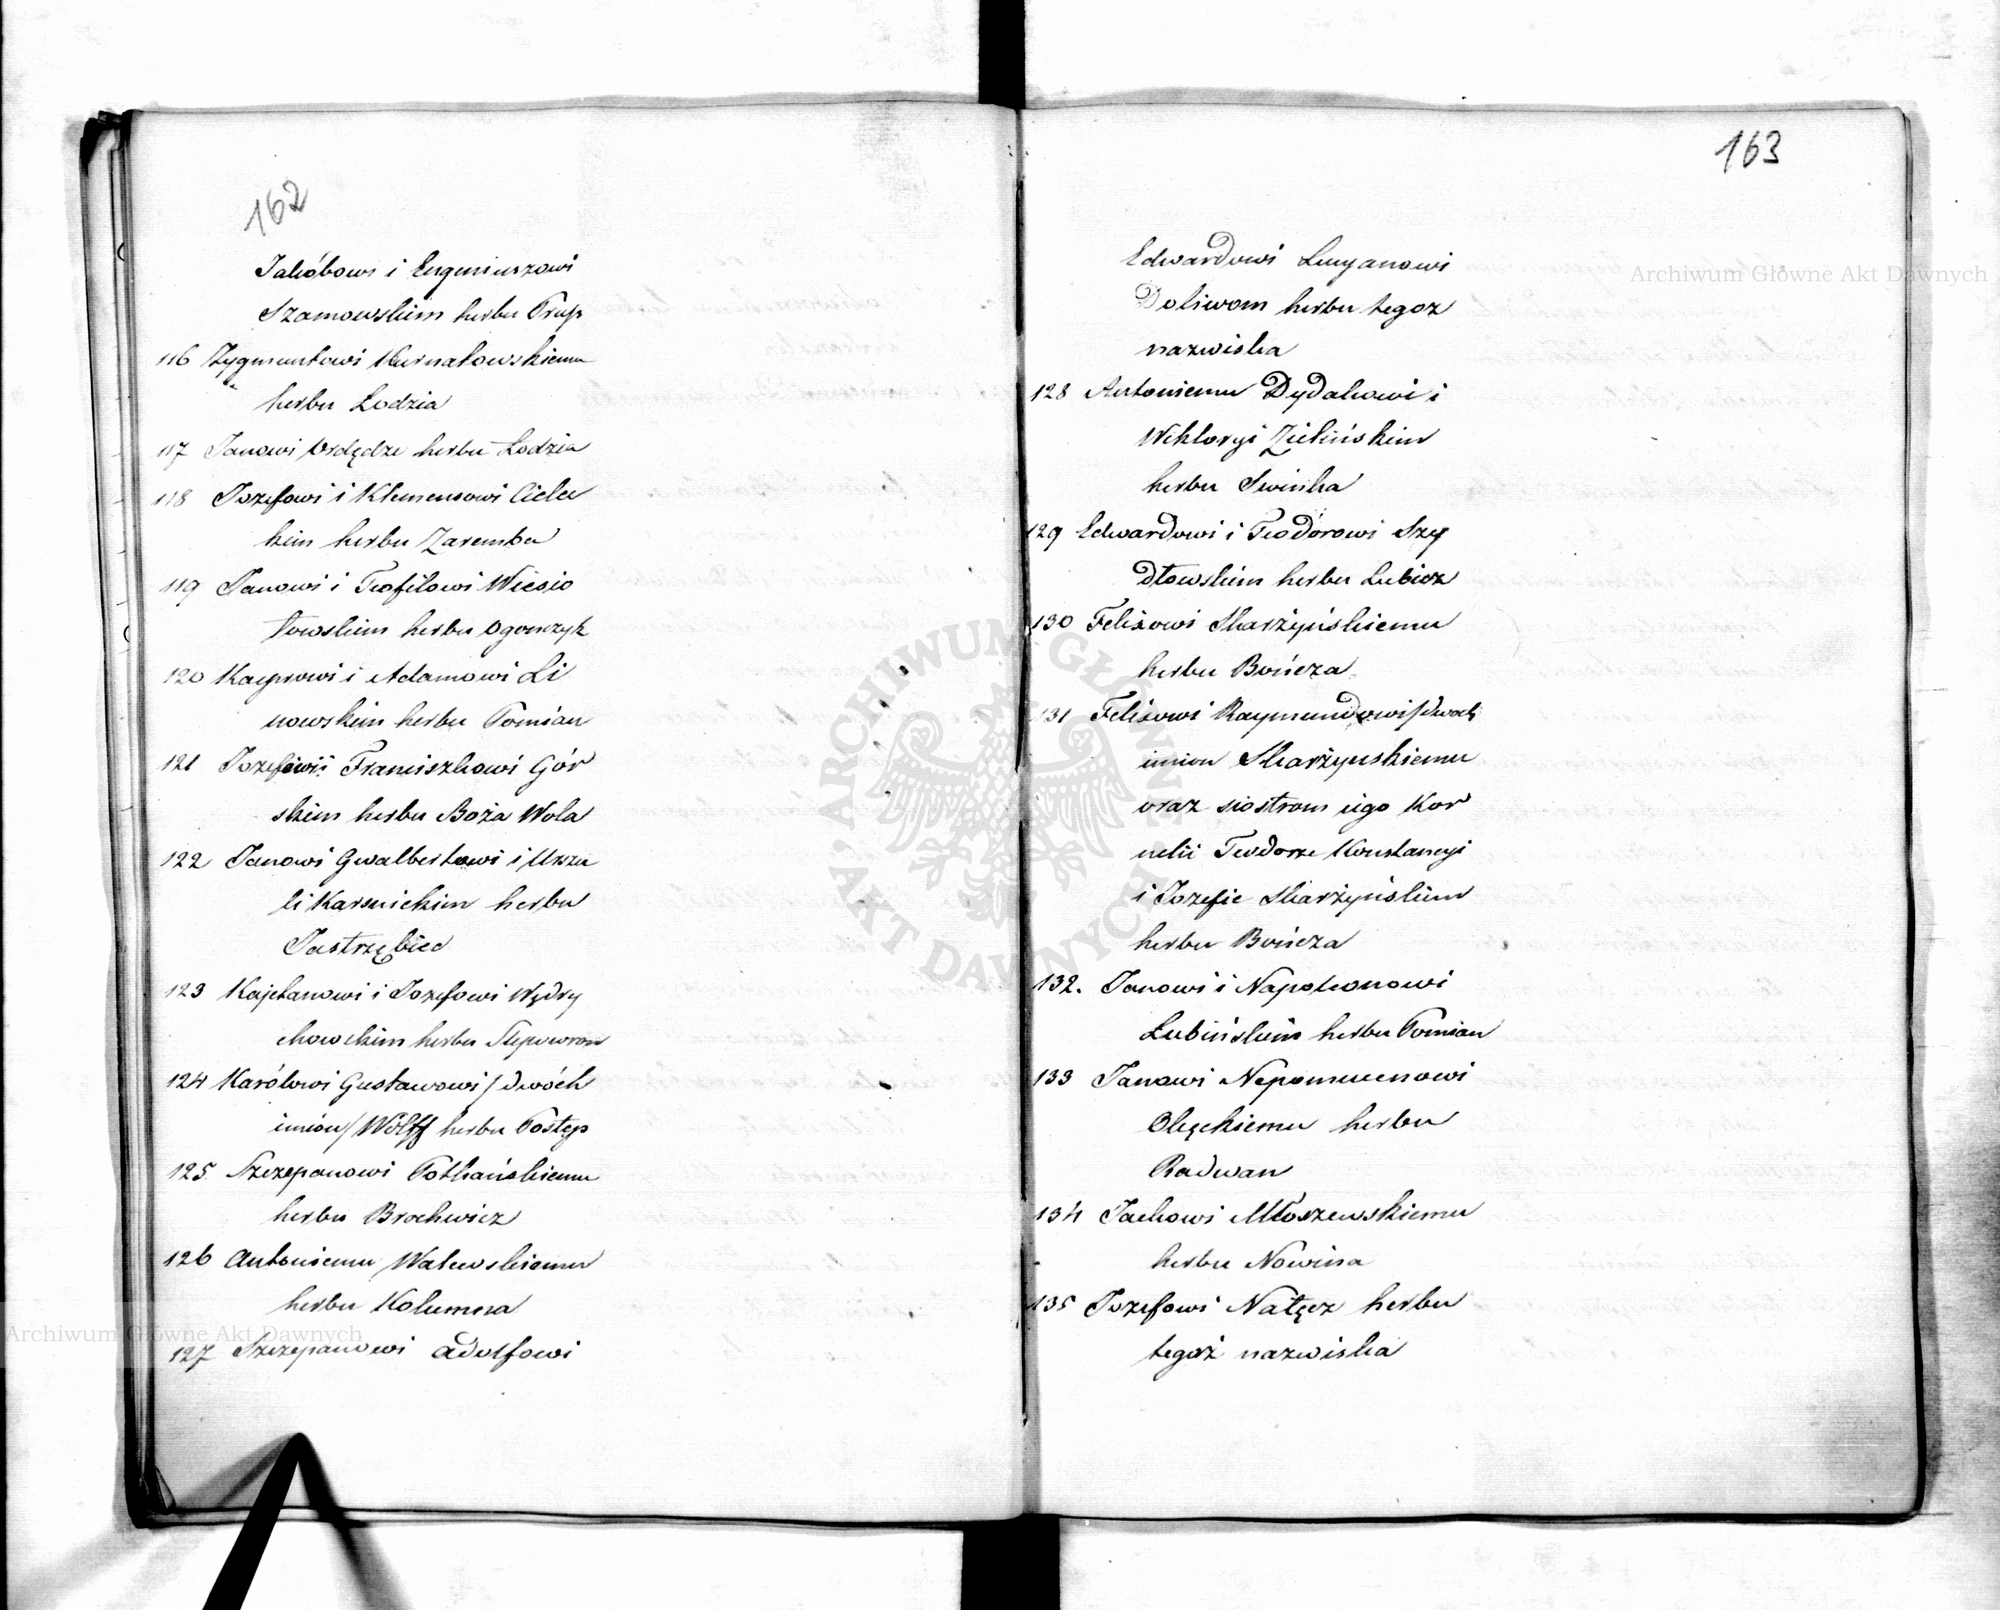 162
Jakóbowi i Eugeniuszowi
Szamowskim herbu Prus
116 Zygmuntowi Kurnatowskiemu
herbu Łodzia
117 Janowi Ordędze herbu Łodzia
118 Jozefowi i Klemensowi Ciele
kim herbu Zaremba
119 Janowi i Teofilowi Wiesio
łowskim herbu Ogonczyk
120 Kacprowi i Adamowi Li
nowskim herbu Pomian
121 Jozefowi i Franciszkowi Gór
skim herbu Boża Wola
122 Janowi Gwalbertowi i Urszu
li Karsnickim herbu
Jastrzębiec
123 Kajetanowi i Jozefowi Wędry
chowskim herbu Slepowron
124 Karólowi Gustawowi / dwóch
imión / Wolff herbu Postęp
125 Szczepanowi Potkańskiemu
herbu Brochwicz
126 Antoniemu Walewskiemu
herbu Kolumna
127 Szczepanowi Adolfowi
163
Edwardowi Lucyanowi
Doliwom herbu tegoz
nazwiska
128 Antoniemu Dydakowi i
Wiktoryi Zielińskim
herbu Swinka
129 Edwardowi i Teodorowi Szy
dłowskim herbu Lubicz
130 Felixowi Skarżyńskiemu
herbu Bończa
131 Felixowi Raymundowi / dwoch
imion Skarżyńskiemu
oraz siostrom iego Kor
nelii Teodorze Konstancyi
i Jozefie Skarżyńskim
herbu Bończa
132. Janowi i Napoleonowi
Łubińskim herbu Pomian
133 Janowi Nepomucenowi
Olęckiemu herbu
Radwan
134 Jackowi Młoszewskiemu
herbu Nowina
135 Jozefowi Nałęcz herbu
tegoż nazwiska
Archiwum Główne Akt Dawnych
Archiwum Główne Akt Dawnych
ARCHIWUM GŁÓWNE AKT DAWNYCH